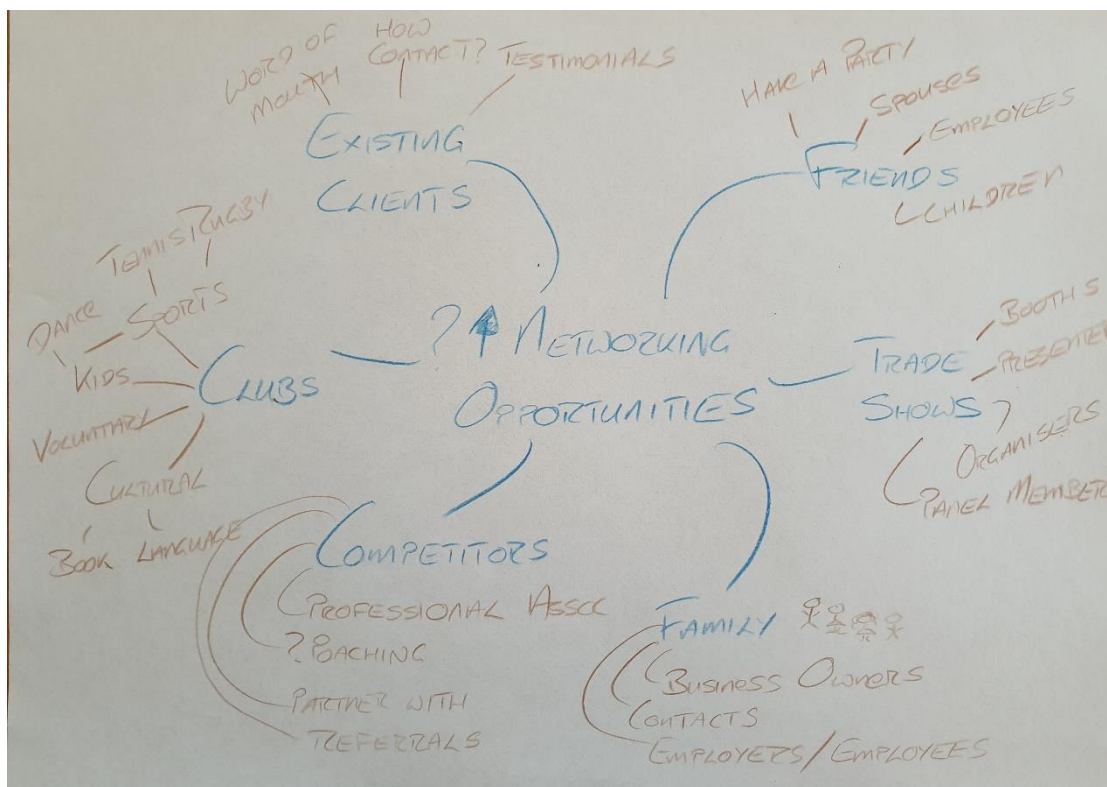 ? ↑ NETWORKING
OPPORTUNITIES
EXISTING
CLIENTS
WORD OF
MOUTH
HOW
CONTACT?
TESTIMONIALS
FRIENDS
HAVE A PARTY
SPOUSES
EMPLOYEES
CHILDREN
TRADE
SHOWS
BOOTHS
PRESENTER
ORGANISERS
PANEL MEMBER
FAMILY
BUSINESS OWNERS
CONTACTS
EMPLOYERS/EMPLOYEES
COMPETITORS
PROFESSIONAL ASSCC
? POACHING
PARTNER WITH
REFERRALS
CLUBS
SPORTS
TENNIS
RUGBY
KIDS
DANCE
VOLUNTARY
CULTURAL
BOOK
LANGUAGE